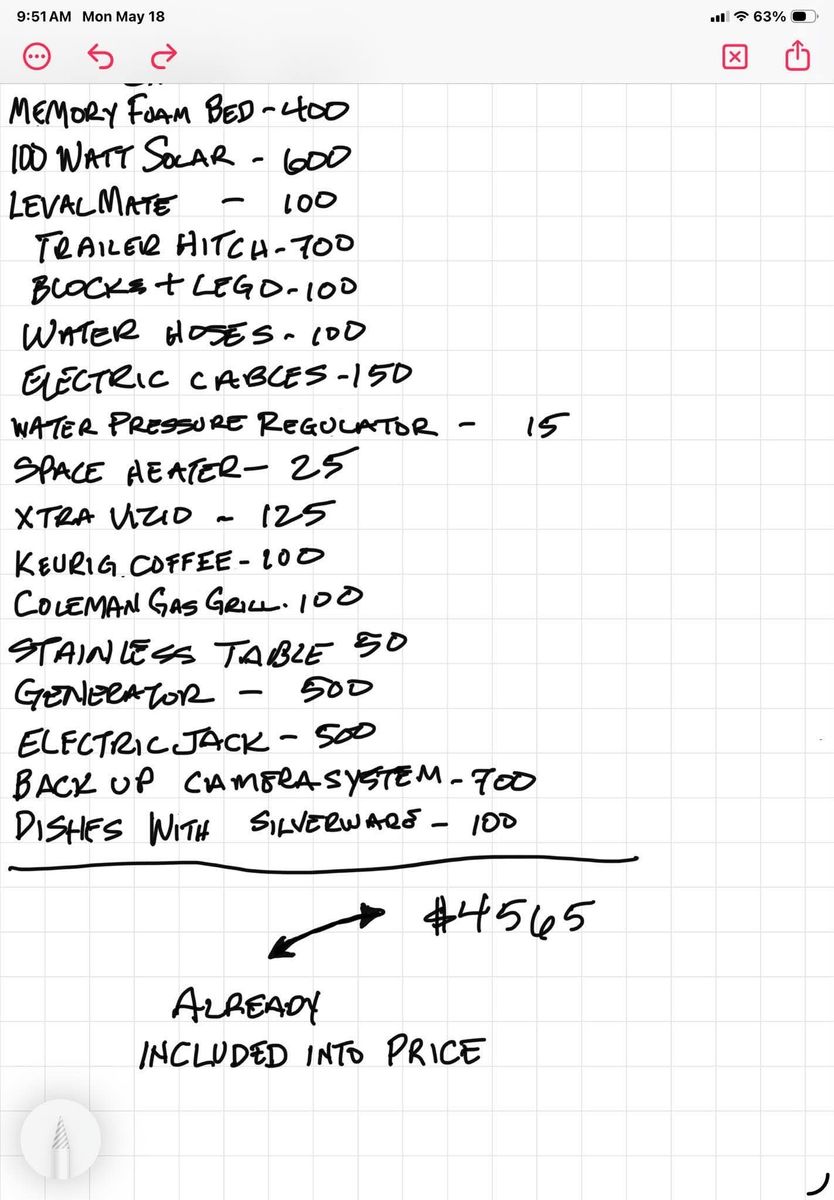 9:51 AM Mon May 18 63%
MEMORY FOAM BED - 400
100 WATT SOLAR - 600
LEVALMATE - 100
TRAILER HITCH - 700
BLOCKS + LEGO - 100
WATER HOSES - 100
ELECTRIC CABLES - 150
WATER PRESSURE REGULATOR - 15
SPACE HEATER - 25
XTRA VIZIO - 125
KEURIG COFFEE - 200
COLEMAN GAS GRILL. 100
STAINLESS TABLE 50
GENERATOR - 500
ELECTRIC JACK - 500
BACK UP CAMERA SYSTEM - 700
DISHES WITH SILVERWARE - 100
$4565
ALREADY
INCLUDED INTO PRICE